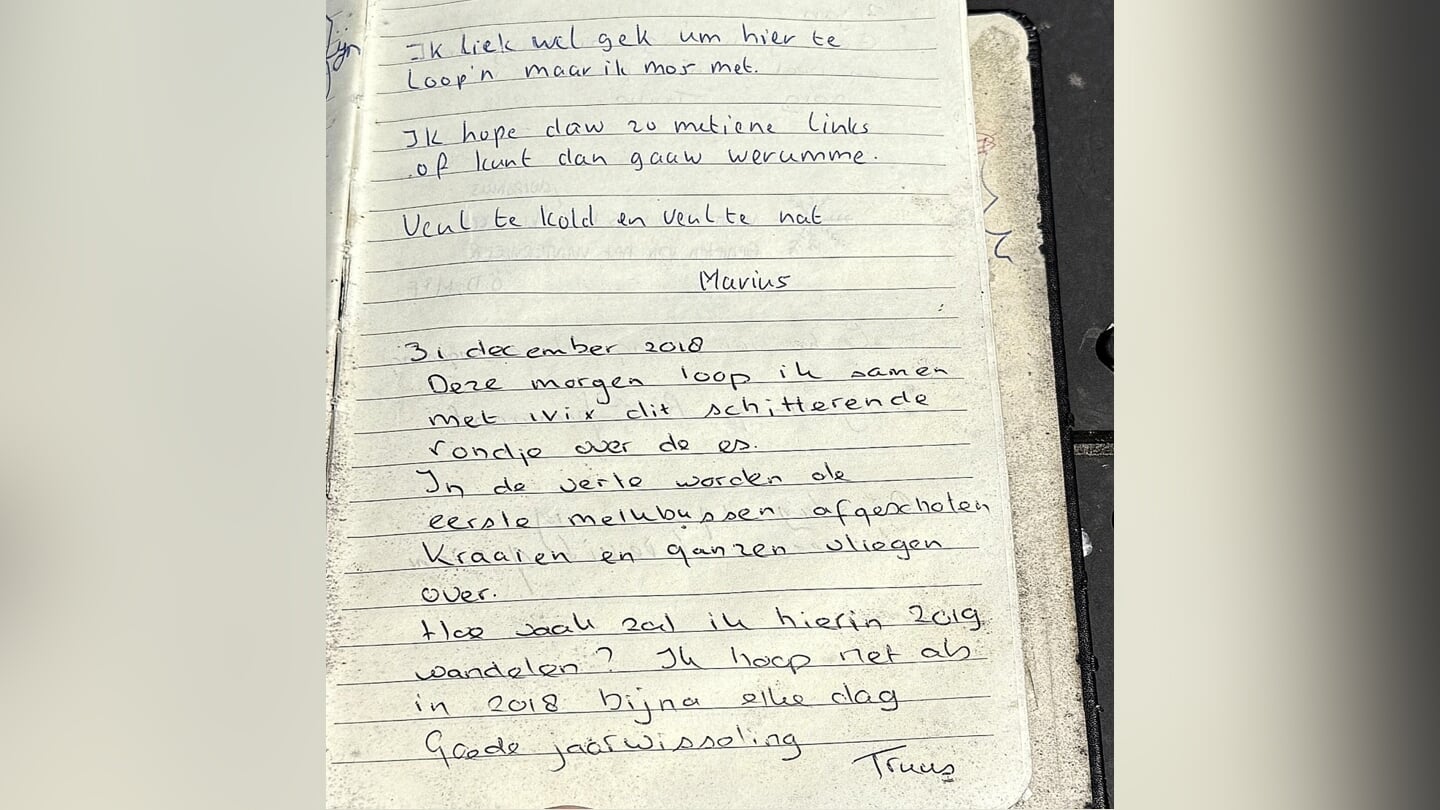 Ik liek wel gek um hier te
Loop'n maar ik mos met.
Ik hope daw zo metiene links
of kunt dan gaaw werumme.
Veul te kold en veul te nat
Marius
31 december 2018
Deze morgen loop ik samen
met dit schitterende
rondje over de es.
In de verte worden de
eerste melkbussen afgeschoten
Kraaien en ganzen vliegen
over.
Hoe vaak zal ik hier in 2019
wandelen? Ik hoop net als
in 2018 bijna elke dag
Goede jaarwisseling
Truus